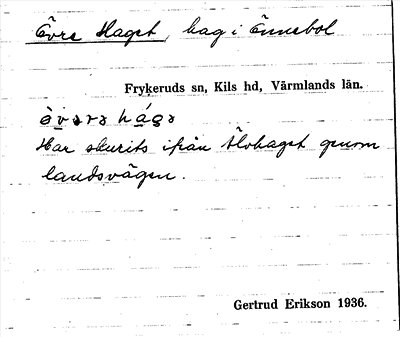 Övre Haget, hag i Önnebol
Frykeruds sn, Kils hd, Värmlands län.
Har skurits ifrån Älvhaget genom
landsvägen.
Gertrud Erikson 1936.